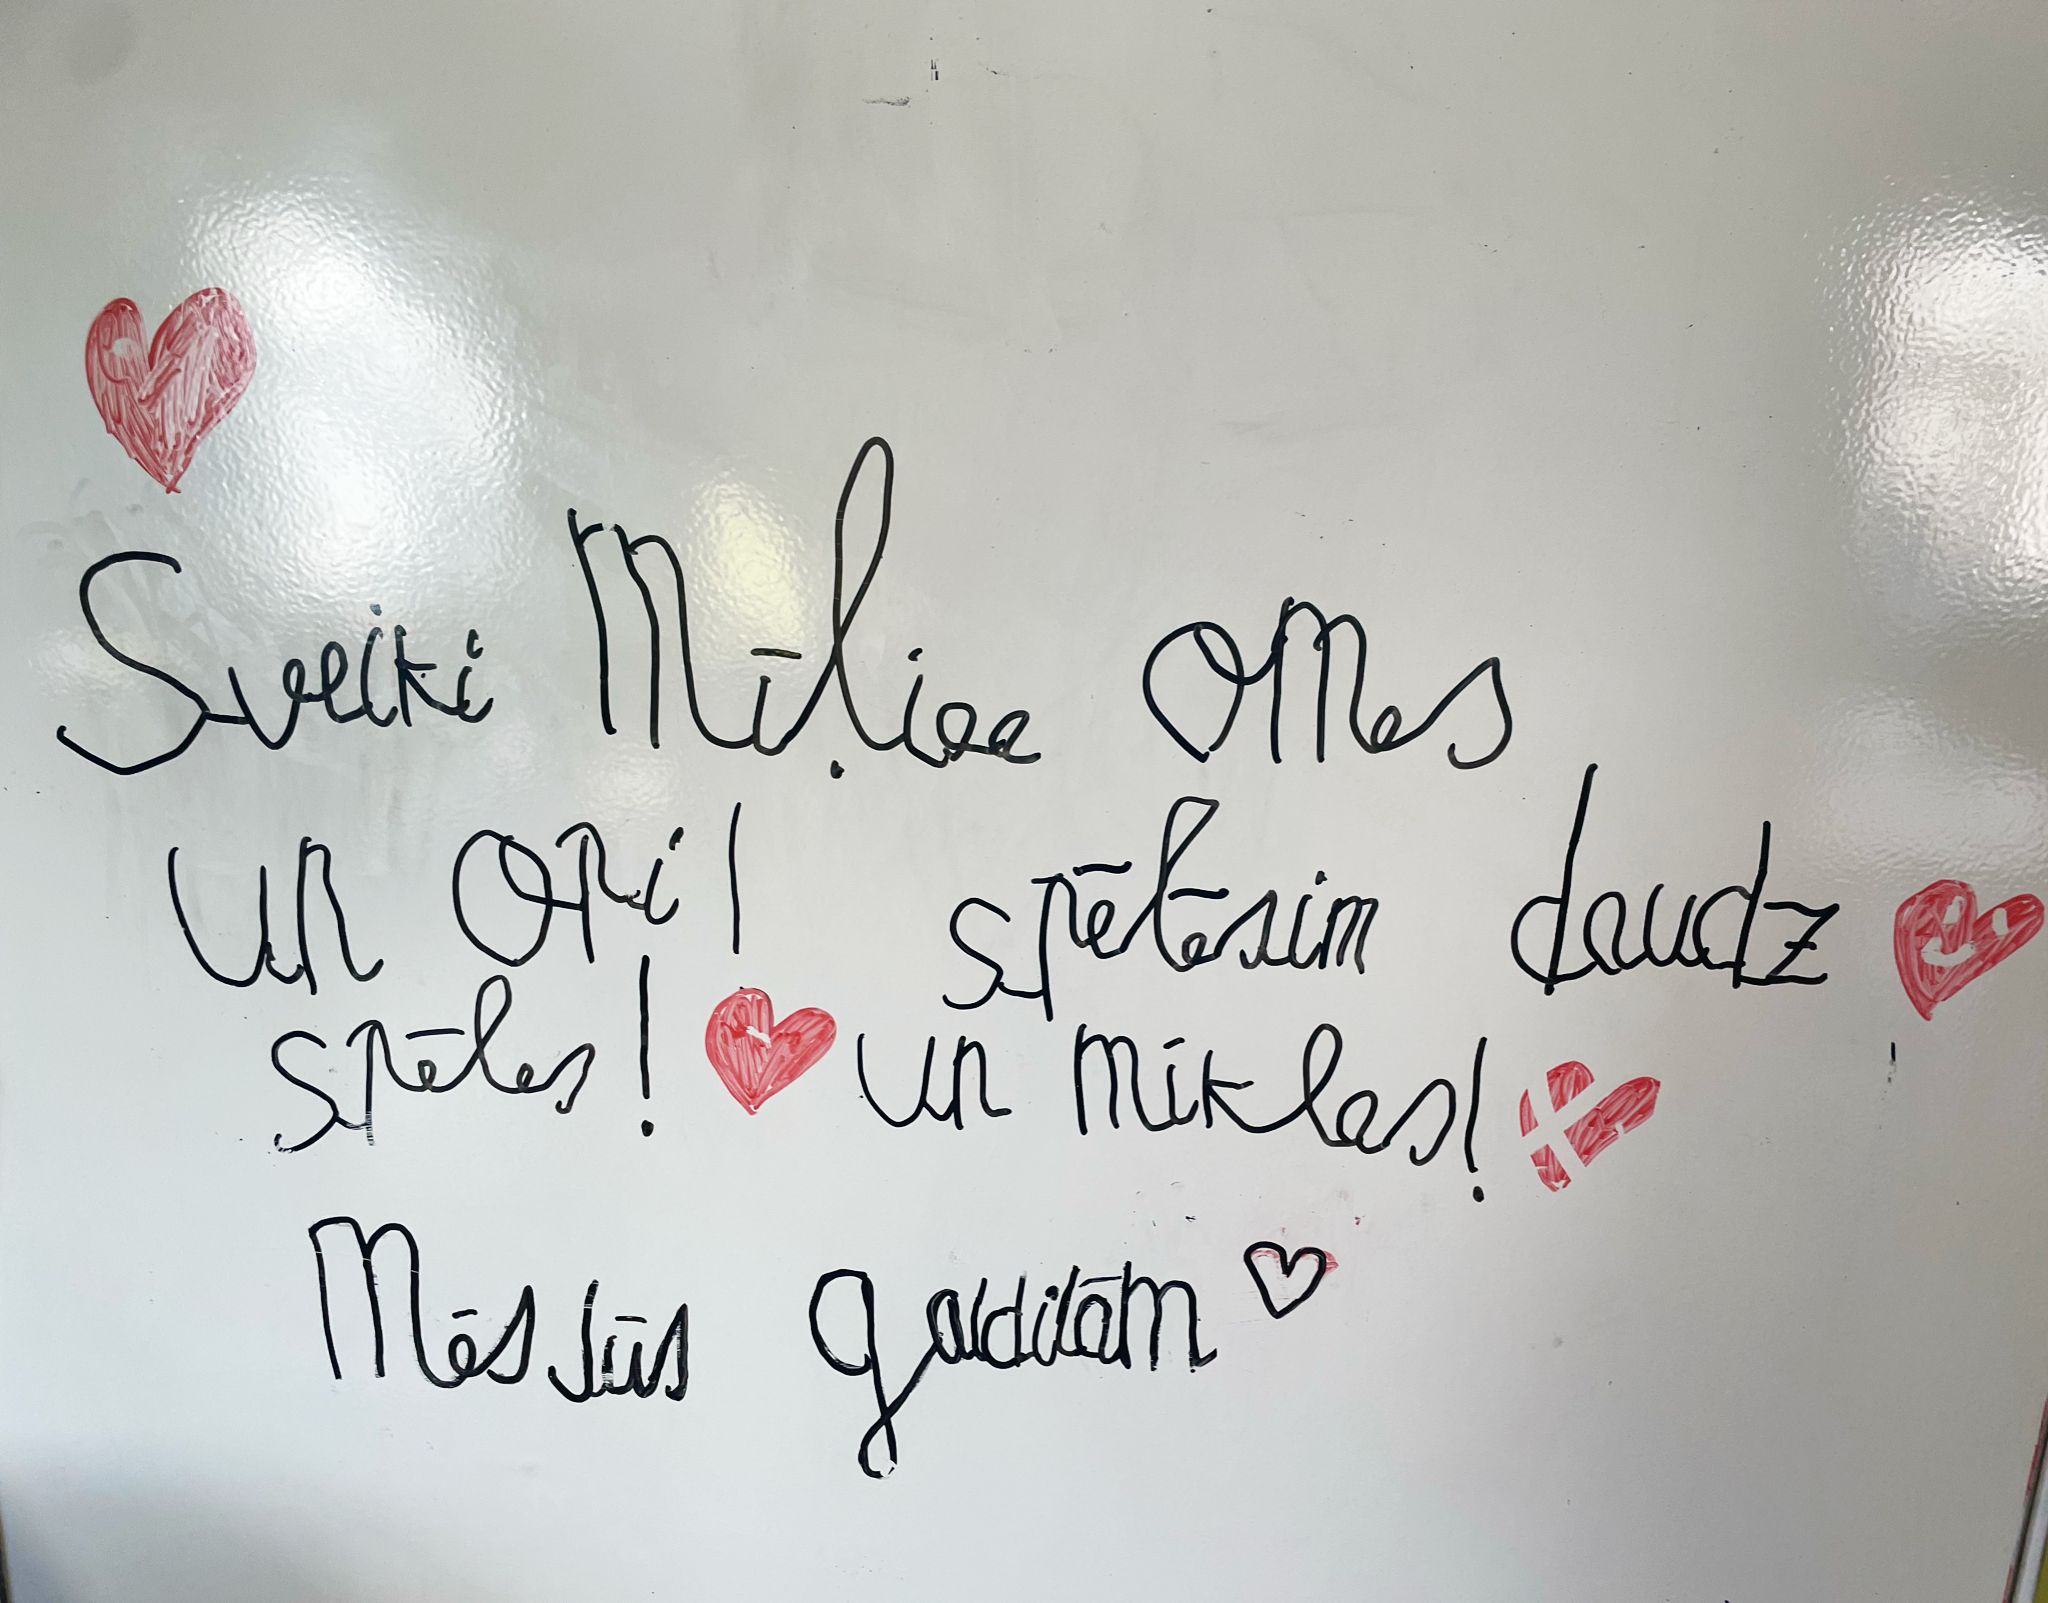 Sveiki Mīļiee omes
un opi! spēlēsim daudz
spēles! un mīklas!
Mēs Jūs gaidilām